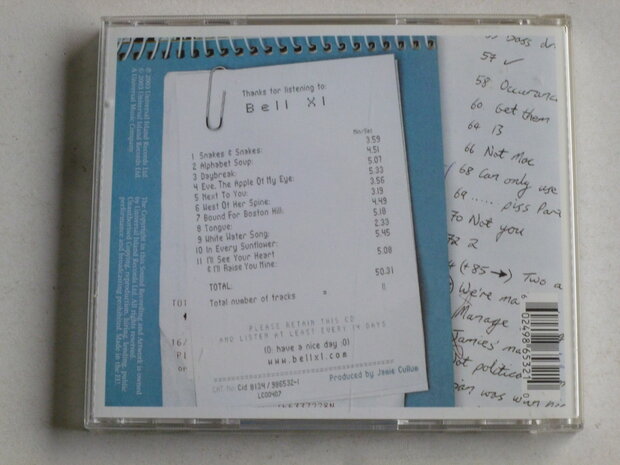 ℗ 2003 Universal Island Records Ltd.
© 2003 Universal Island Records Ltd.
A Universal Music Company.
The Copyright in this Sound Recording and Artwork is owned
by Universal Island Records Ltd. All rights reserved.
Unauthorised Copying, reproduction, hiring, lending, public
performance and broadcasting prohibited. Made in the EU.
Thanks for listening to:
Bell X1
Min/Sec
1 Snakes & Snakes: 3.59
2 Alphabet Soup: 4.51
3 Daybreak: 5.07
4 Eve, The Apple Of My Eye: 5.33
5 Next To You: 3.56
6 West Of Her Spine: 3.19
7 Bound For Boston Hill: 4.49
8 Tongue: 5.18
9 White Water Song: 2.33
10 In Every Sunflower: 5.45
11 I'll See Your Heart
& I'll Raise You Mine: 5.08
TOTAL: 50.31
Total number of tracks = 11
PLEASE RETAIN THIS CD
AND LISTEN AT LEAST EVERY 14 DAYS
(0: have a nice day :0)
www.bellx1.com
CAT. No: Cid 8129 / 986532-1
LC00407
Produced by Jamie Cullum
TOT
57 ✓
58 Occurance
60 Get them
64 13
66 Not Moe
68 Can only use
69 ..... piss
70 Not you
72 2
(+85→) Two a
We're ma
Manage
James' ma
Not politica
was
6 02498 65321 0